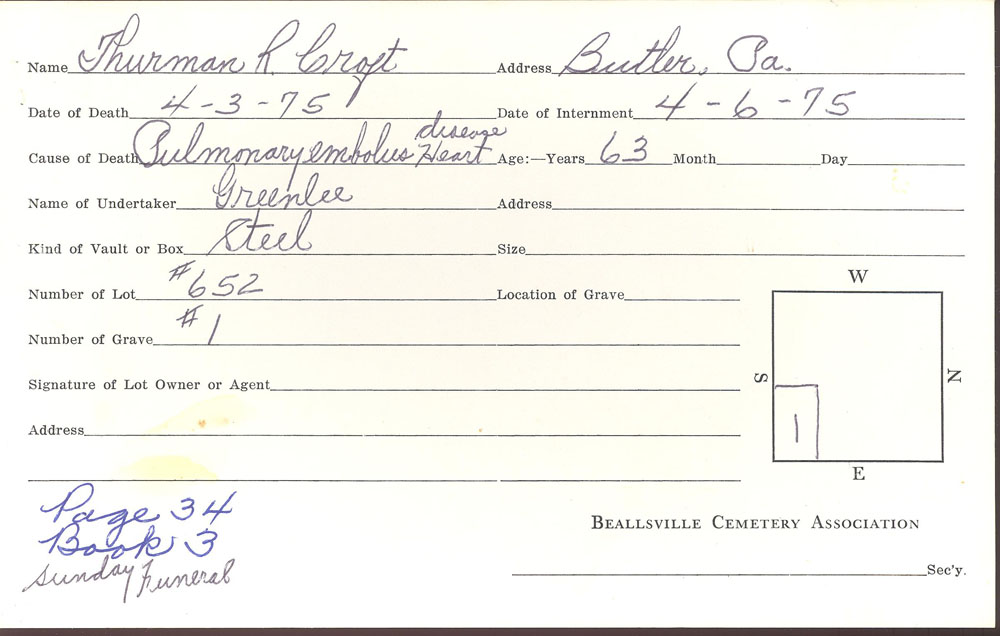 Name Thurman R. Croft Address Butler, Pa.
Date of Death 4-3-75 Date of Internment 4-6-75
Cause of Death Pulmonary embolus Heart disease Age:—Years 63 Month Day
Name of Undertaker Greenlee Address
Kind of Vault or Box Steel Size
Number of Lot #652 Location of Grave
Number of Grave #1
Signature of Lot Owner or Agent
Address
W
S
N
1
E
Page 34
Book 3
Sunday Funeral
BEALLSVILLE CEMETERY ASSOCIATION
Sec'y.